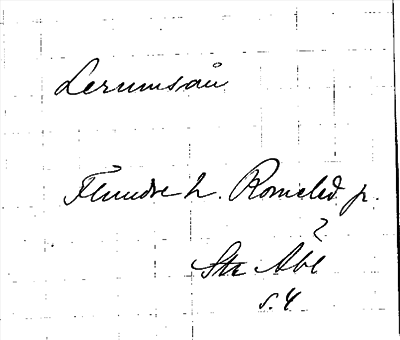 Lerumsån
Flundre h. Romeled p.
?
Sta Åbl
s. 4